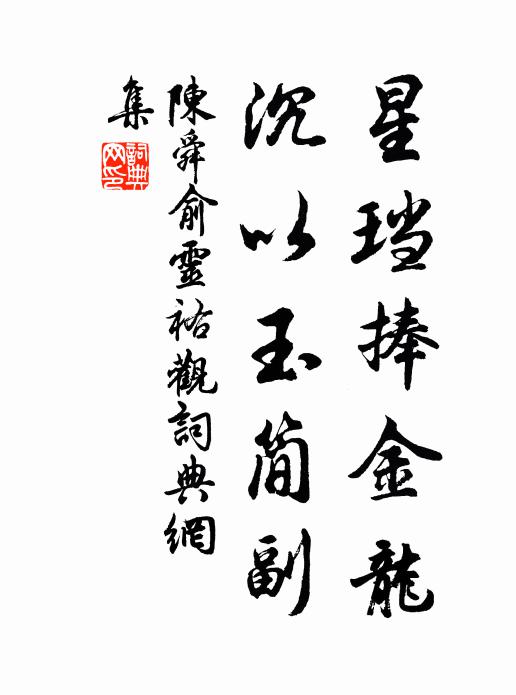 星珰捧金龍
沉以玉簡副
陳舜俞靈祐觀詞典網
集
詞典網印